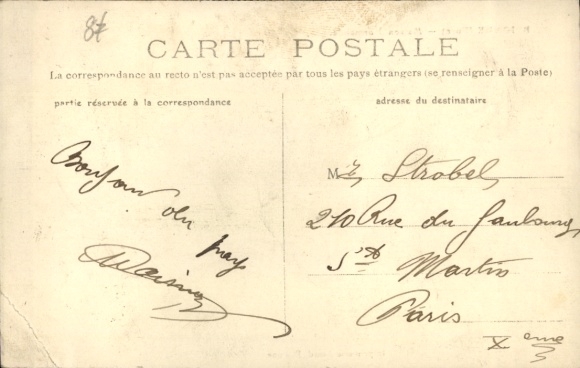 87
CARTE POSTALE
La correspondance au recto n'est pas acceptée par tous les pays étrangers (se renseigner à la Poste)
partie réservée à la correspondance
adresse du destinataire
Bonjour du pays
Mr Strobel
210 Rue du Faubourg
St Martin
Paris
Xeme